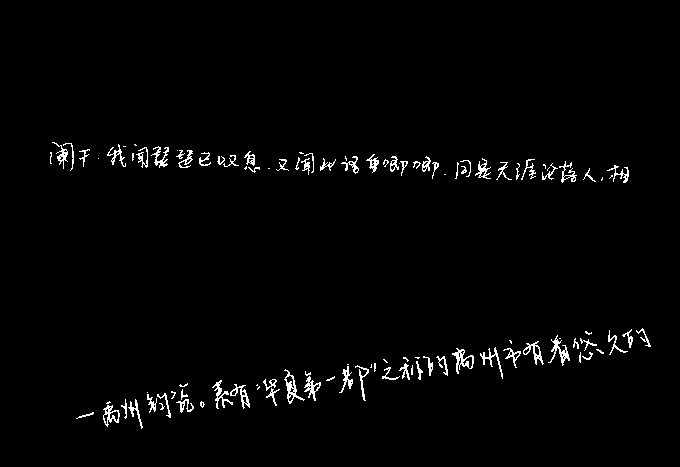 阑干.我闻琵琶已叹息.又闻此语重唧唧.同是天涯沦落人,相
一禹州钧瓷。素有“华夏第一都”之称的禹州市有着悠久的